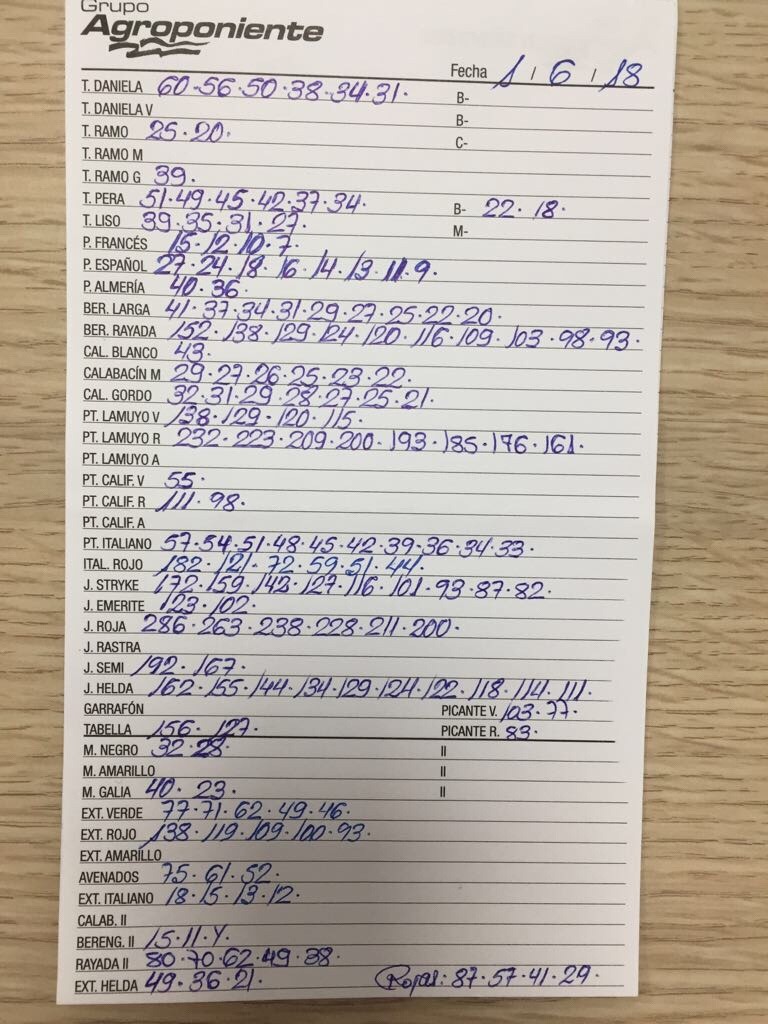 Grupo
Agroponiente
Fecha 1 / 6 / 18
T. DANIELA 60·56·50·38·34·31· B-
T. DANIELA V B-
T. RAMO 25·20· C-
T. RAMO M
T. RAMO G 39·
T. PERA 51·49·45·42·37·34· B- 22·18·
T. LISO 39·35·31·27· M-
P. FRANCÉS 15·12·10·7·
P. ESPAÑOL 27·24·18·16·14·13·11·9·
P. ALMERÍA 40·36·
BER. LARGA 41·37·34·31·29·27·25·22·20·
BER. RAYADA 152·138·129·124·120·116·109·103·98·93·
CAL. BLANCO 43·
CALABACÍN M 29·27·26·25·23·22·
CAL. GORDO 32·31·29·28·27·25·21·
PT. LAMUYO V 138·129·120·115·
PT. LAMUYO R 232·223·209·200·193·185·176·161·
PT. LAMUYO A
PT. CALIF. V 55·
PT. CALIF. R 111·98·
PT. CALIF. A
PT. ITALIANO 57·54·51·48·45·42·39·36·34·33·
ITAL. ROJO 182·121·72·59·51·44·
J. STRYKE 172·159·142·127·116·101·93·87·82·
J. EMERITE 123·102·
J. ROJA 286·263·238·228·211·200·
J. RASTRA
J. SEMI 192·167·
J. HELDA 162·155·144·134·129·124·122·118·114·111·
GARRAFÓN PICANTE V. 103·77·
TABELLA 156·127· PICANTE R. 83·
M. NEGRO 32·28· II
M. AMARILLO II
M. GALIA 40·23· II
EXT. VERDE 77·71·62·49·46·
EXT. ROJO 138·119·109·100·93·
EXT. AMARILLO
AVENADOS 75·61·52·
EXT. ITALIANO 18·15·13·12·
CALAB. II
BERENG. II 15·11·
RAYADA II 80·70·62·49·38·
EXT. HELDA 49·36·21· Rojas: 87·57·41·29·